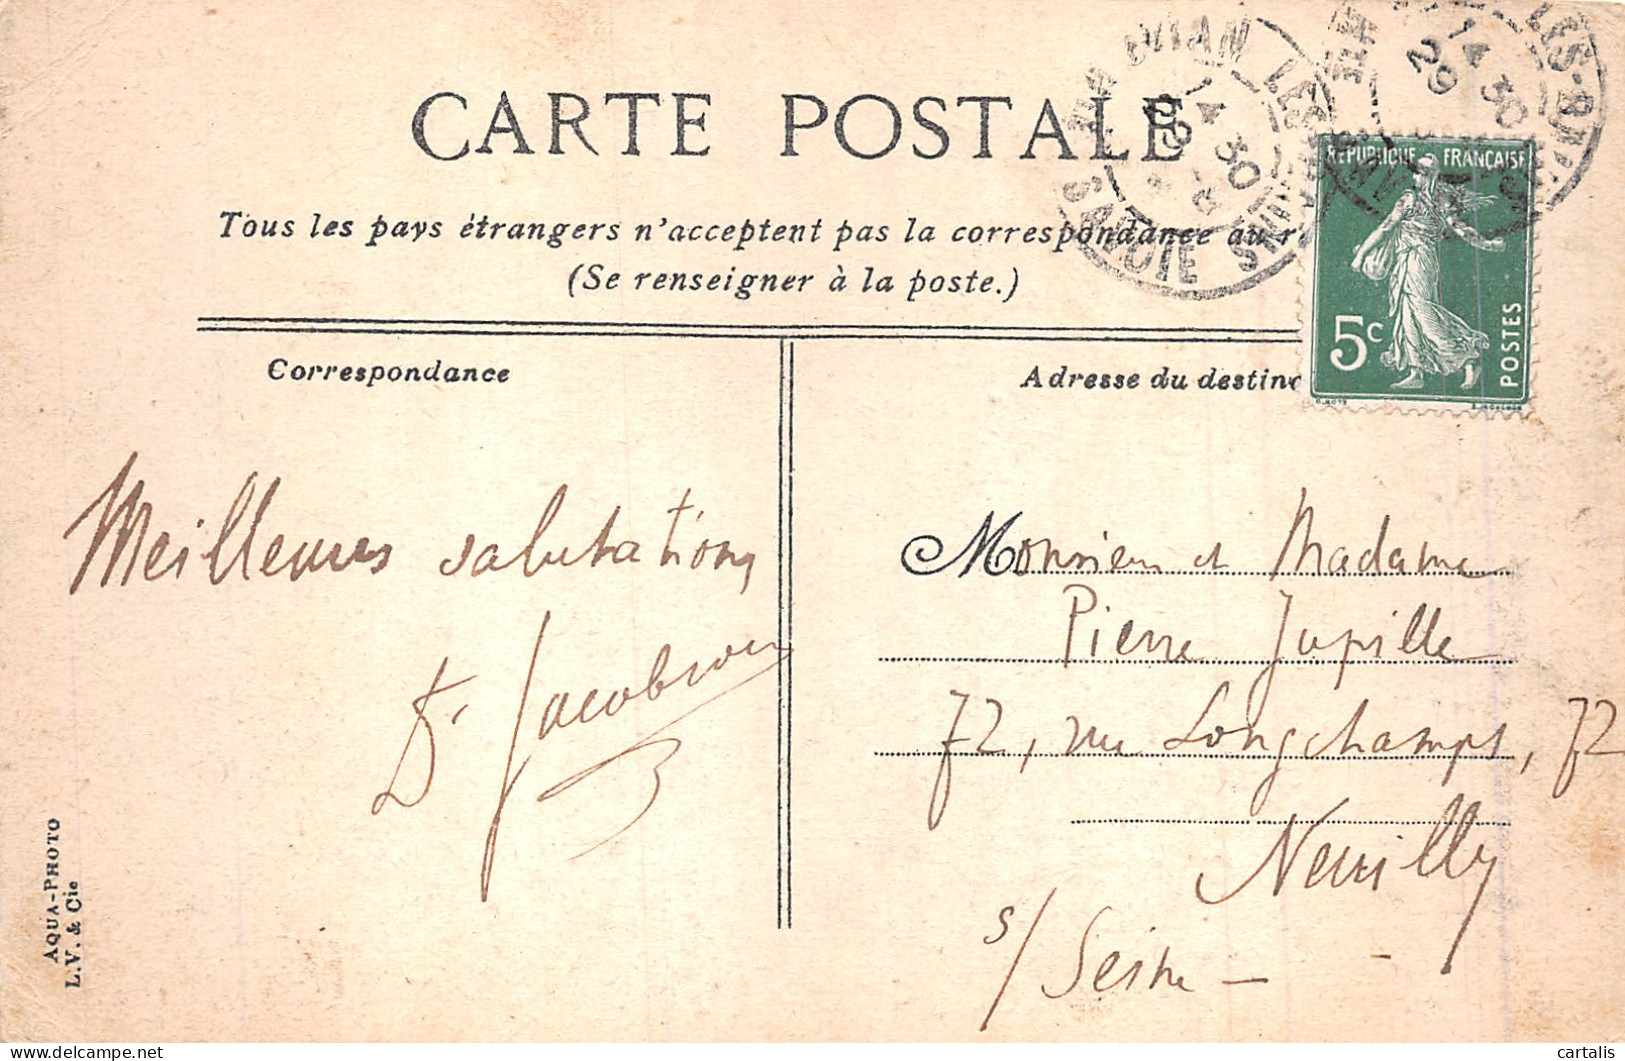 CARTE POSTALE
Tous les pays étrangers n'acceptent pas la correspondance au r
(Se renseigner à la poste.)
Correspondance
Adresse du destina
EVIAN LES BAINS
14 30
29
SAVOIE
LES-BAINS
14 30
29
REPUBLIQUE FRANÇAISE
5c
POSTES
Meilleures salutations
Dr Jacobson
Monsieur et Madame
Pierre Jupille
72, rue Longchamps, 72
Neuilly
s/ Seine –
AQUA-PHOTO
L.V. & Cie
cartalis